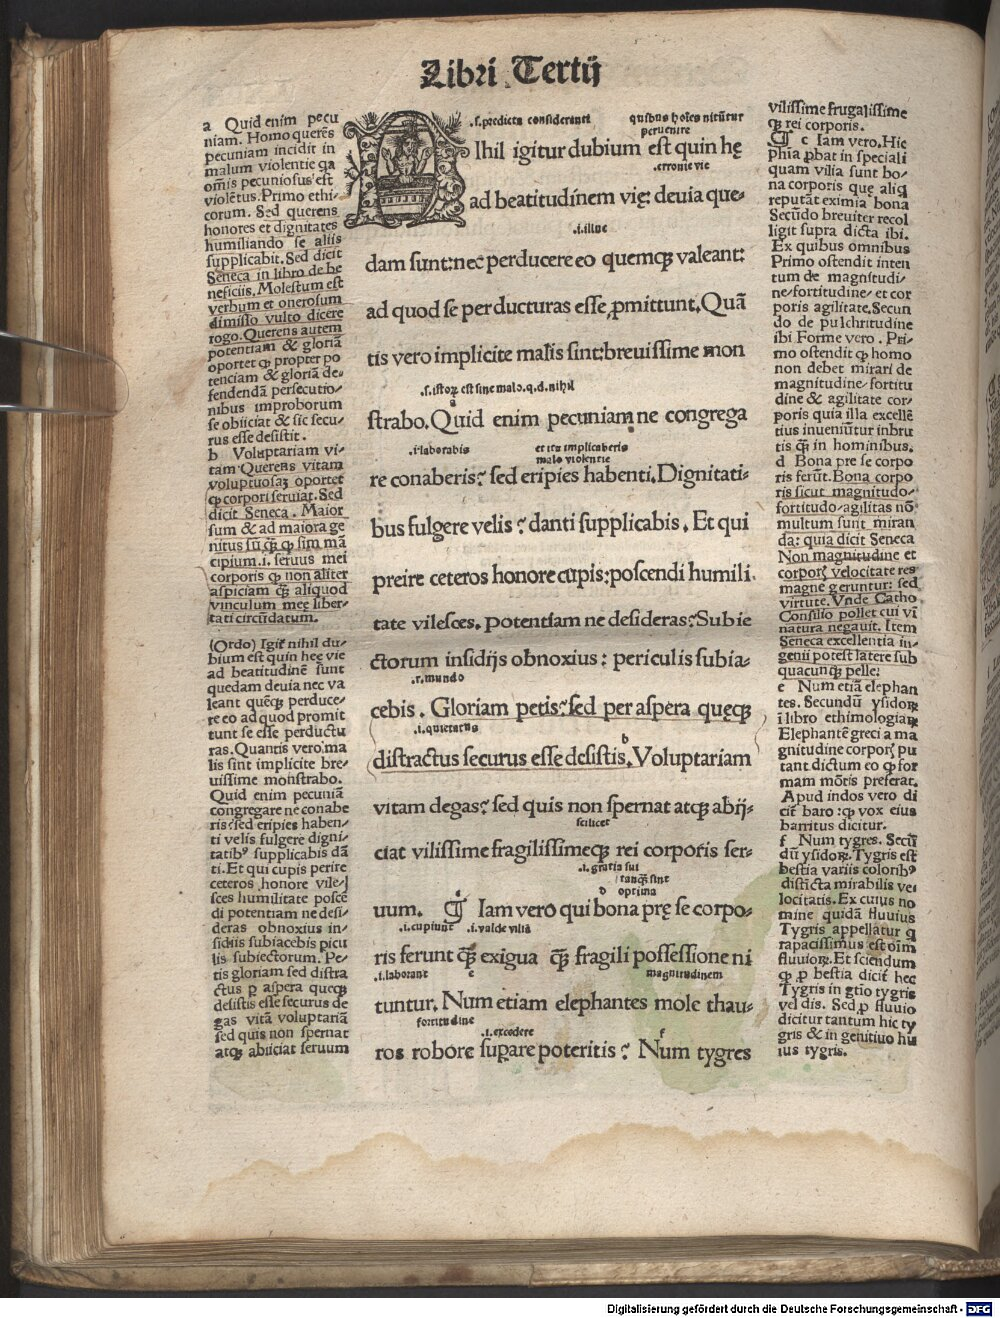 Libri Tertij
a Quid enim pecu
niam. Homo querēs
pecuniam incidit in
malum violentie qa
om̄is pecuniosus est
violētus. Primo ethi-
corum. Sed querens
honores et dignitates
humiliando se aliis
supplicabit. Sed dicit
Seneca in libro de be
neficiis. Molestum est
verbum et onerosum
dimisso vulto dicere
rogo. Querens autem
potentiam & gloriā
oportet ꝙ propter po
tenciam & gloriā de-
fendendā persecutio-
nibus improborum
se obiiciat & sic secu-
rus esse desistit.
b Voluptariam vi-
tam Querens vitam
voluptuosaȝ oportet
ꝙ corpori seruiat. Sed
dicit Seneca . Maior
sum & ad maiora ge
nitus sū q̄ꝫ ꝙ sim mā
cipium .i. seruus mei
corporis ꝙ non aliter
aspiciam q̄ꝫ aliquod
vinculum meę liber-
tati circūdatum.
(Ordo) Igit̄ nihil du-
bium est quin hęc vie
ad beatitudinē sunt
quedam deuia nec va
leant quēqꝫ perduce-
re eo ad quod promit
tunt se esse perductu
ras. Quantis vero ma
lis sint implicite bre-
uissime monstrabo.
Quid enim pecuniā
congregare ne conabe
ris? sed eripies haben-
ti velis fulgere digni-
tatibꝰ supplicabis dā
ti. Et qui cupis perire
ceteros honore vile-
sces humilitate poscē
di potentiam ne desi-
deras obnoxius in-
sidiis subiacebis picu
lis subiectorum. Pe-
tis gloriam sed distra
ctus ꝑ aspera queqꝫ
desistis esse securus de
gas vitā voluptariā
sed quis non spernat
atqꝫ abiiciat seruum
.s. predicta consideranti quibus hoīes nitūtur
peruenire
Ihil igitur dubium est quin hę
.erronie vie
ad beatitudinem vię: deuia que-
.i. illuc
dam sunt: nec perducere eo quemqꝫ valeant:
ad quod se perducturas esse ꝓmittunt. Quā
tis vero implicite malis sint: breuissime mon
.s. istoꝝ est sine malo. q. d. nihil
a
strabo. Quid enim pecuniam ne congrega
.i laborabis et ita implicaberis
malo violentie
re conaberis? sed eripies habenti. Dignitati-
bus fulgere velis? danti supplicabis. Et qui
preire ceteros honore cupis: poscendi humili
tate vilesces. Potentiam ne desideras? Subie
ctorum insidijs obnoxius: periculis subia-
.r. mundo
cebis. Gloriam petis? sed per aspera quęqꝫ
.i. quietatus
b
distractus securus esse desistis. Voluptariam
vitam degas? sed quis non spernat atqꝫ abij-
scilicet
ciat vilissime fragilissimeqꝫ rei corporis ser-
.i. gratia sui
tanqꝫ sint
c d optima
uum. ¶ Iam vero qui bona prę se corpo-
.i. cupiunt .i. valde vilia
ris ferunt q̄ꝫ exigua q̄ꝫ fragili possessione ni
.i. laborant e magnitudinem
tuntur. Num etiam elephantes mole thau-
fortitudine
.i. excedere f
ros robore suꝑare poteritis? Num tygres
vilissime fragilissime
qꝫ rei corporis.
¶ c Iam vero. Hic
Phia ꝓbat in speciali
quam vilia sunt bo-
na corporis que aliq
reputāt eximia bona
Secūdo breuiter recol
ligit supra dicta ibi.
Ex quibus omnibus
Primo ostendit inten
tum de magnitudi-
ne-fortitudine- et cor
poris agilitate. Secun
do de pulchritudine
ibi Forme vero . Pri-
mo ostendit ꝙ homo
non debet mirari de
magnitudine-fortitu
dine & agilitate cor-
poris quia illa excellē
tius inueniūtur in bru
tis q̄ꝫ in hominibus.
d Bona pre se corpo
ris ferūt. Bona corpo
ris sicut magnitudo-
fortitudo-agilitas nō
multum sunt miran
da: quia dicit Seneca
Non magnitudine et
corporꝫ velocitate res
magne geruntur: sed
virtute. Vnde Catho
Consilio pollet cui vī
natura negauit. Item
Seneca excellentia in-
genii potest latere sub
quacunqꝫ pelle:
e Num etiā elephan
tes. Secundū ysidoꝝ
ī libro ethimologiaꝝ
Elephantē greci a ma
gnitudine corporꝫ pu
tant dictum eo ꝙ for
mam mōtis preferat.
Apud indos vero di
cit̄ baro: ꝙ vox eius
barritus dicitur.
f Num tygres. Secū
dū ysidoꝝ. Tygris est
bestia variis coloribꝰ
distīcta mirabilis ve
locitatis. Ex cuius no
mine quidā fluuius
Tygris appellatur q
rapacissimus est oīm
fluuioꝝ. Et sciendum
ꝙ ꝓ bestia dicit̄ hec
Tygris in gtīo tygris
vel dis. Sed ꝓ fluuio
dicitur tantum hic ty
gris & in genitiuo hu
ius tygris.
Digitalisierung gefördert durch die Deutsche Forschungsgemeinschaft - DFG